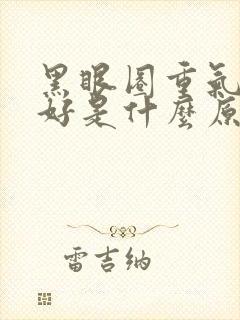 黑眼圈重氣
好是什麼原
雷吉纳